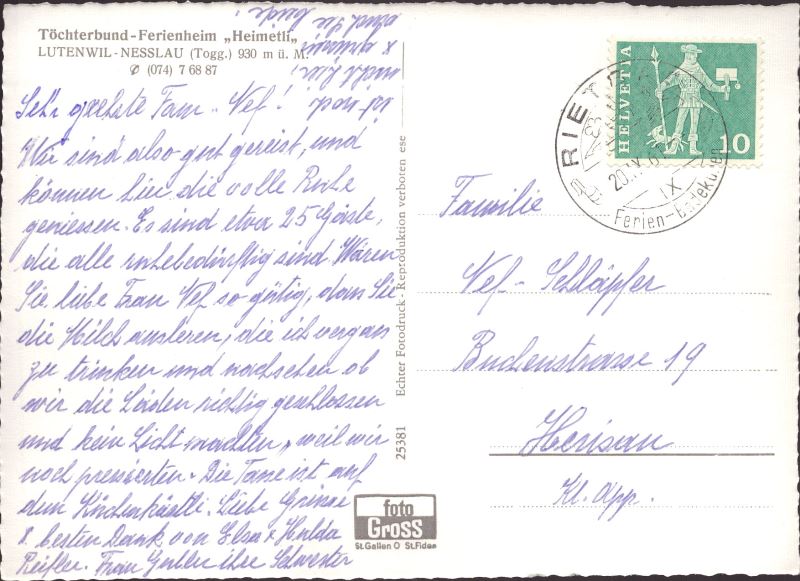 Töchterbund-Ferienheim „Heimetli"
LUTENWIL-NESSLAU (Togg.) 930 m ü. M.
✆ (074) 7 68 87
Sehr geehrte Fam. Nef!
Wir sind also gut gereist, und
können hier die volle Ruhe
geniessen. Es sind etwa 25 Gäste,
die alle ruhebedürftig sind. Wären
Sie liebe Frau Nef so gütig, dass Sie
die Milch ausleeren, die ich vergass
zu trinken und nachsehen ob
wir die Läden richtig geschlossen
und kein Licht machten, weil wir
noch pressierten. Die Tase ist auf
dem Küchenkästli. Liebe Grüsse
& besten Dank von Elsa & Hulda
Reifler. Frau ihre Schwester
ist noch
nicht hier
beide!
Echter Fotodruck - Reproduktion verboten ese
25381
foto
Gross
St.Gallen O St.Fiden
HELVETIA
10
RIET
20.
IX
Ferien-
Familie
Nef-Schläpfer
Buchenstrasse 19
Herisau
Kt. App.